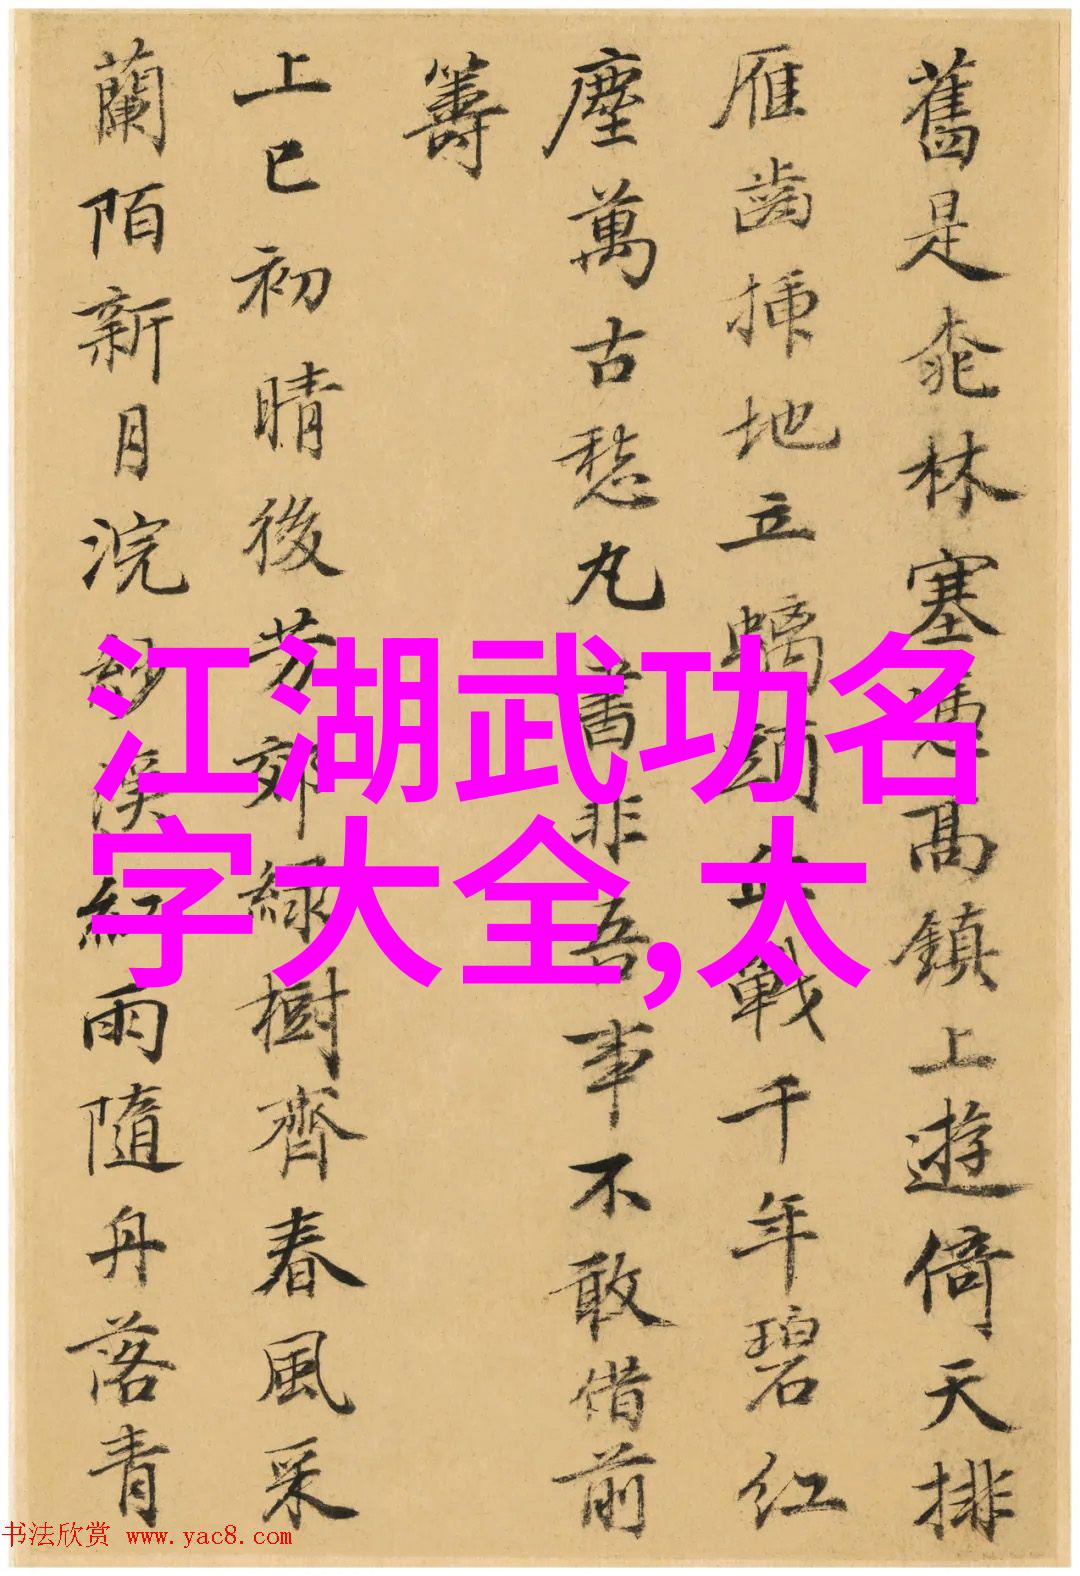 舊是桃林塞憑高鎮上遊倚天排
雁齒插地立螭頭血戰千年碧紅
塵萬古愁丸書非吾事不敢借前
籌
上巳初晴後芳郊綠樹齊春風采
蘭陌新月浣紗溪紅雨隨舟落青
江湖武功名
字大全,太
书法欣赏 www.yac8.com